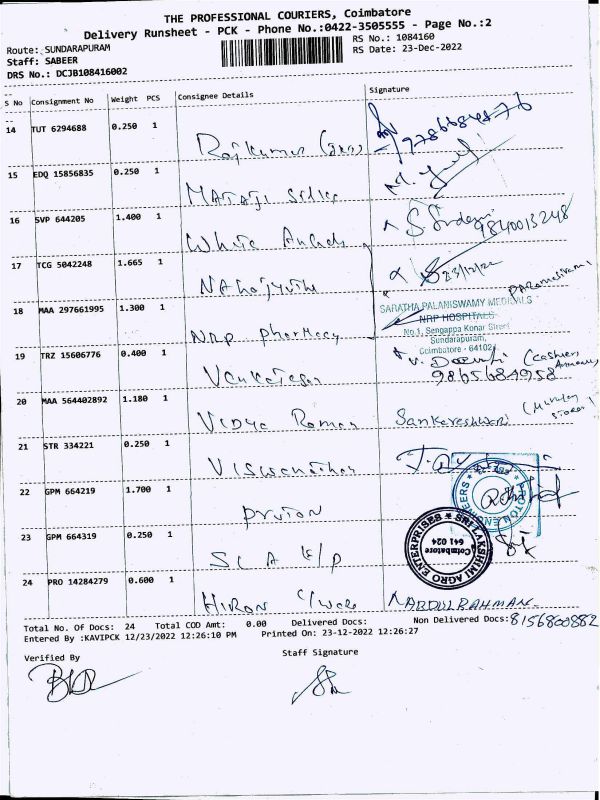 THE PROFESSIONAL COURIERS, Coimbatore
Delivery Runsheet - PCK - Phone No.:0422-3505555 - Page No.:2
Route: SUNDARAPURAM
RS No.: 1084160
Staff: SABEER
RS Date: 23-Dec-2022
DRS No.: DCJB108416002
S No Consignment No Weight PCS Consignee Details Signature
14 TUT 6294688 0.250 1 Rajkumar
15 EDQ 15856835 0.250 1
16 SVP 644205 1.400 1 White
9840013248
17 TCG 5042248 1.665 1
23/12/22
18 MAA 297661995 1.300 1 NRP Pharmacy
SARATHA PALANISWAMY MEDICALS
NRP HOSPITALS
No.1, Sengappa Konar Street
Sundarapuram,
Coimbatore - 64102
19 TRZ 15606776 0.400 1 Venkatesan
(cashier
9865684958
20 MAA 564402892 1.180 1 Vidya Raman Sankareshwari
21 STR 334221 0.250 1 Viswanathan
22 GPM 664219 1.700 1 Proton
PROTON ENGINEERS
23 GPM 664319 0.250 1 SLA
SRI LAKSHIMI AGRO ENTERPRISES
Coimbatore
641 024
24 PRO 14284279 0.600 1 ABDUL RAHMAN
Total No. Of Docs: 24 Total COD Amt: 0.00 Delivered Docs: Non Delivered Docs: 8156800882
Entered By :KAVIPCK 12/23/2022 12:26:10 PM Printed On: 23-12-2022 12:26:27
Verified By Staff Signature